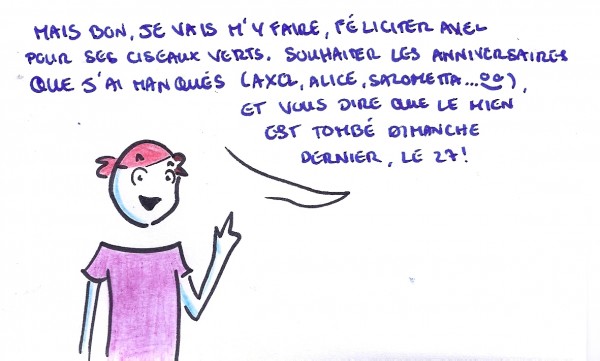 MAIS BON, JE VAIS M'Y FAIRE, FÉLICITER AXEL
POUR SES CISEAUX VERTS. SOUHAITER LES ANNIVERSAIRES
QUE J'AI MANQUÉS (AXEL, ALICE, SALOMETTA...),
ET VOUS DIRE QUE LE MIEN
EST TOMBÉ DIMANCHE
DERNIER, LE 27!